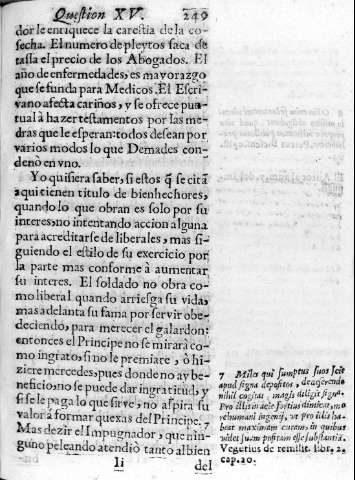 Question XV. 249
dor le enriquece la carestia de la co-
secha. El numero de pleytos saca de
tassa el precio de los Abogados. El
año de enfermedades, es mayorazgo
que se funda para Medicos. El Escri-
vano afecta cariños, y se ofrece pun-
tual à hazer testamentos por las me-
dras que le esperan: todos desean por
varios modos lo que Demades con-
denò en vno.
Yo quisiera saber, si estos q̃ se citã
aqui tienen titulo de bienhechores,
quando lo que obran es solo por su
interes, no intentando accion alguna
para acreditarse de liberales, mas si-
guiendo el estilo de su exercicio por
la parte mas conforme à aumentar
su interes. El soldado no obra co-
mo liberal quando arriesga su vida,
mas adelanta su fama por servir obe-
deciendo, para merecer el galardon:
entonces el Principe no se mirarà co-
mo ingrato, si no le premiare, ò hi-
ziere mercedes, pues donde no ay be-
neficio, no se puede dar ingratitud, y
si se le paga lo que sirve, no aspira su
valor à formar quexas del Principe. 7
Mas dezir el Impugnador, que nin-
guno peleando atendiò tanto al bien
Ii del
7 Miles qui sumptus suos scit
apud signa depositos, de
nihil cogitat, magis diligit signa.
Pro illis in acie fortius dimicat, mo-
re humani ingenij, vt pro illis ha-
beat maximam curam, in quibus
videt suam positam esse substantiã.
Vegetius de re milit. libr. 2.
cap. 20.